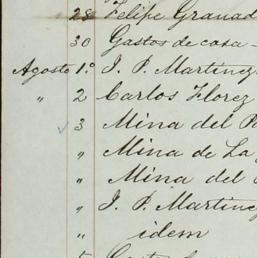 28 Felipe Granad
30 Gastos de casa -
Agosto 1.º J. P. Martinez
" 2 Carlos Florez
3 Mina del
" Mina de La
" Mina del
" J. P. Martinez
" idem